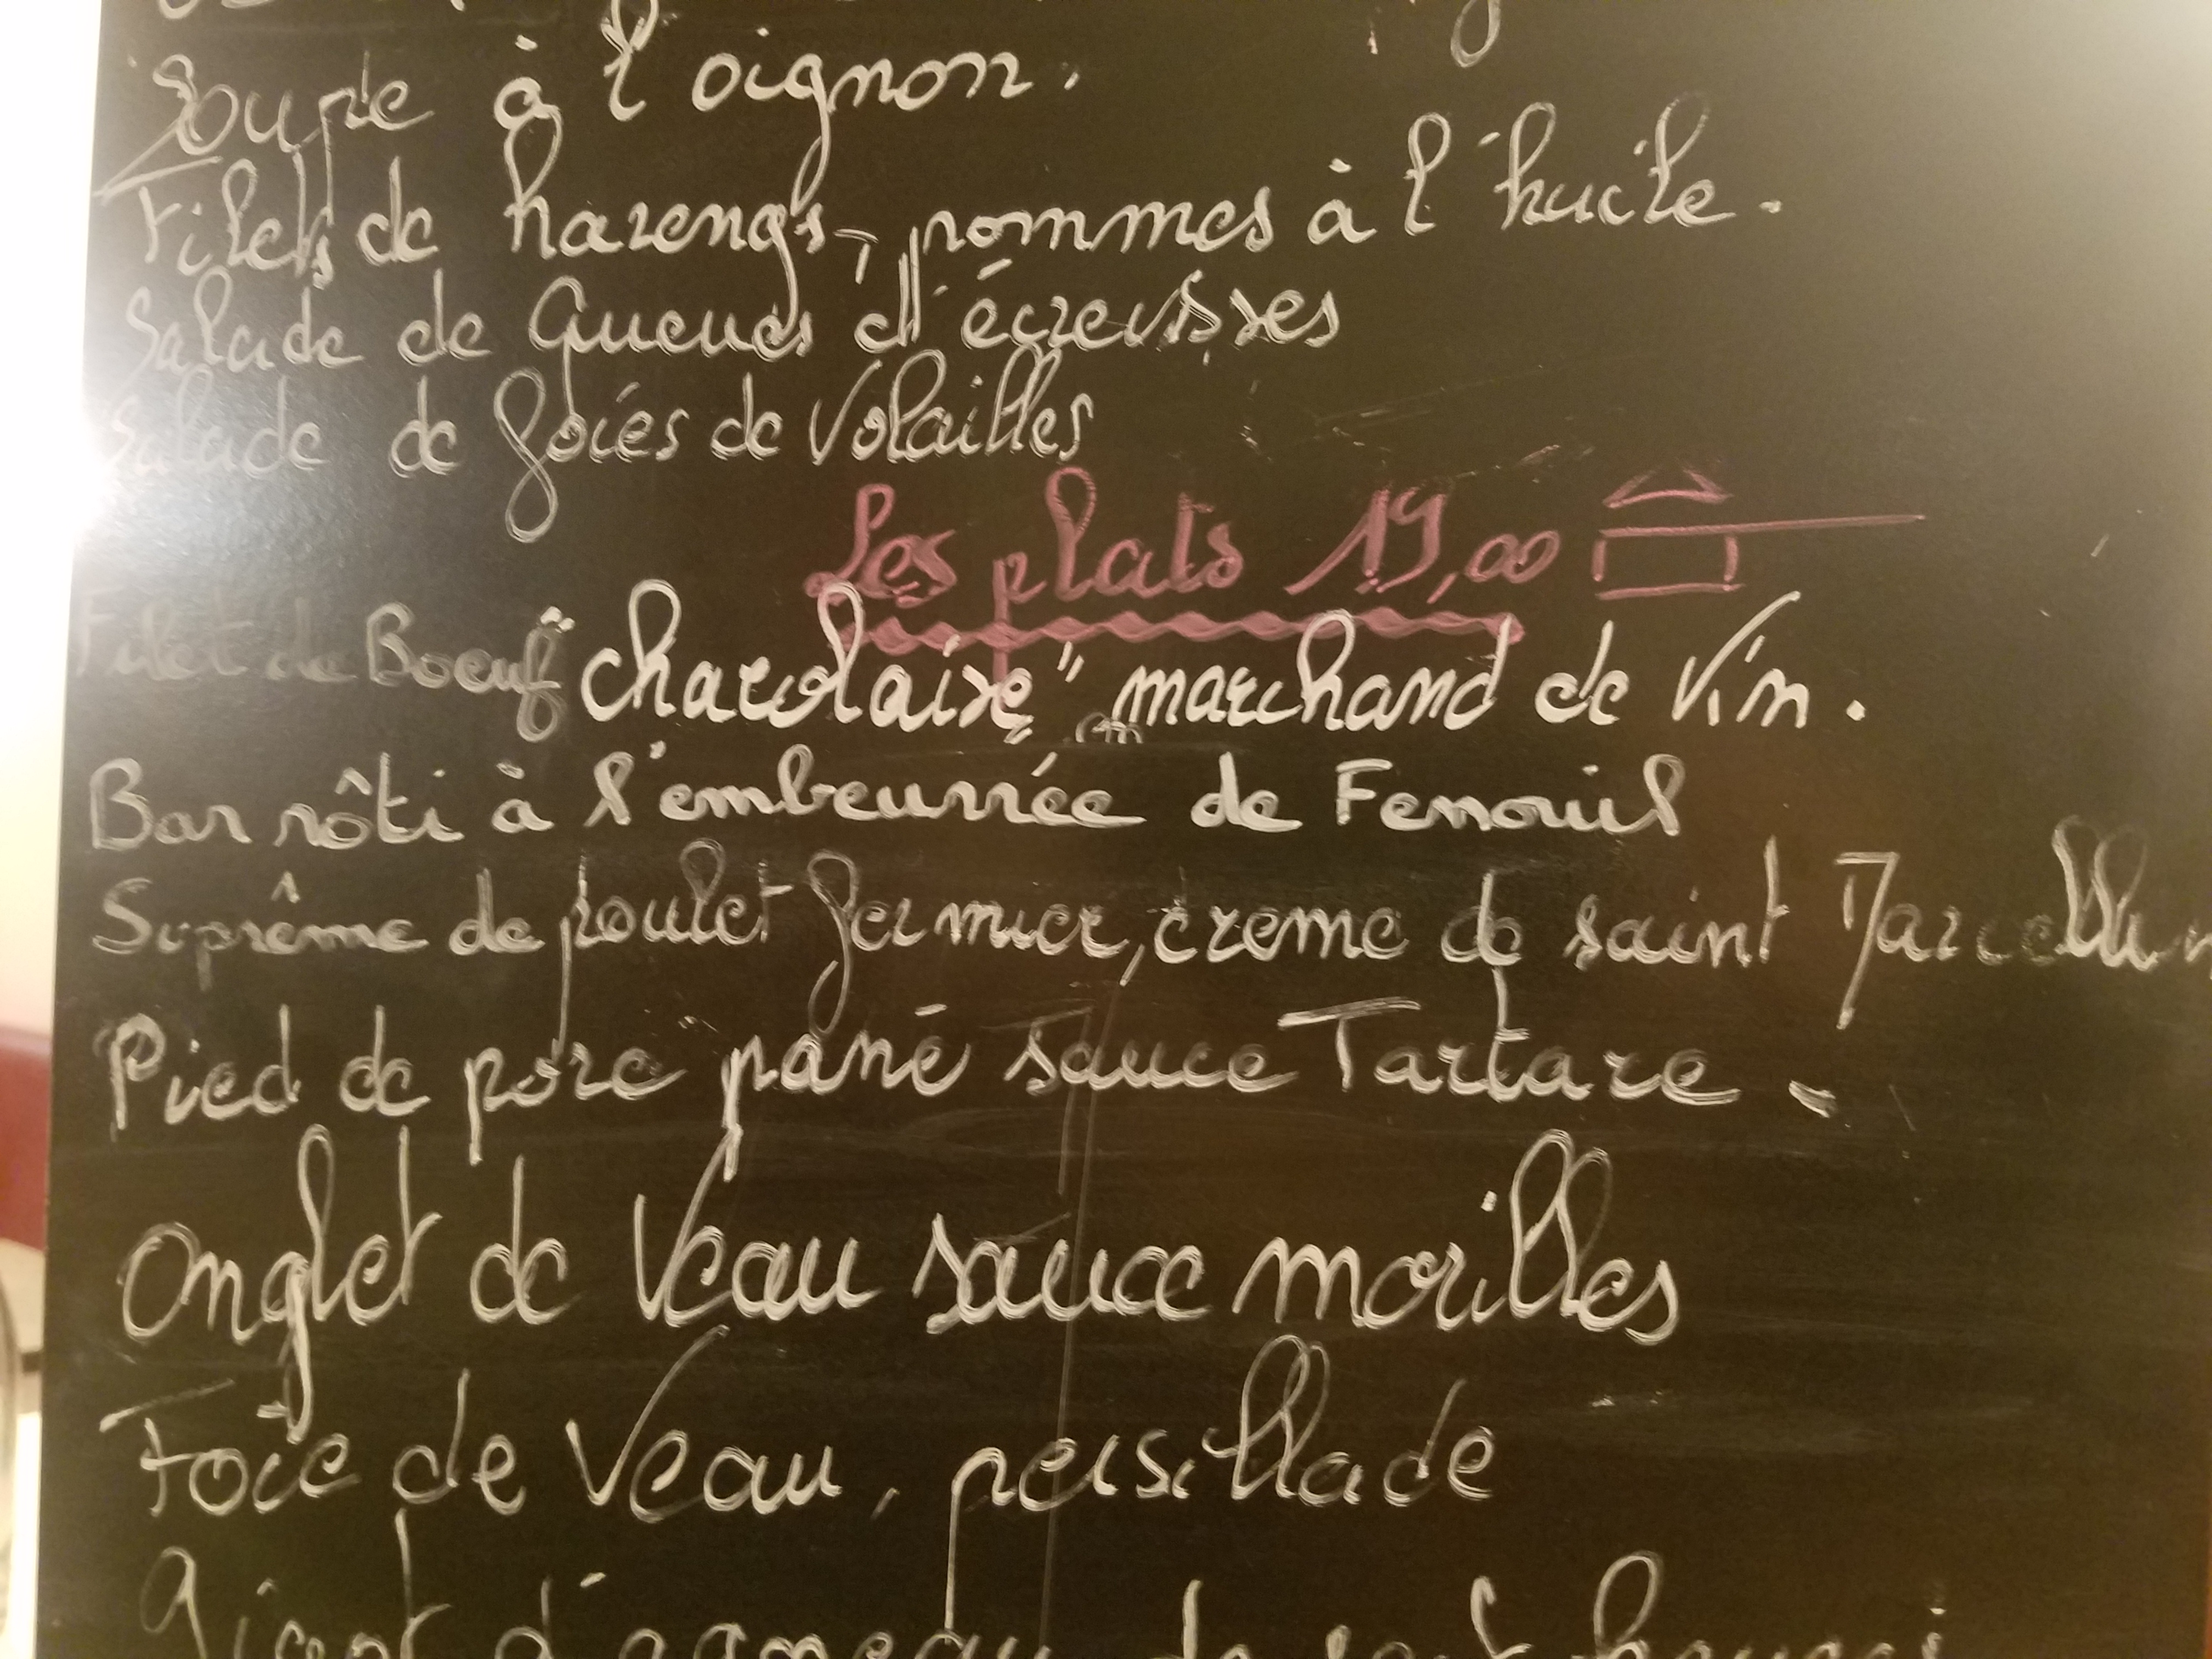 Soupe à l'oignon.
Filets de harengs, pommes à l'huile.
Salade de Queues d'écrevisses
Salade de foies de Volailles
Les plats 19,00
Filet de Boeuf "charolaise" marchand de Vin.
Bar rôti à l'embeurrée de Fenouil
Suprême de poulet fermier, crème de saint Marcellin
Pied de porc pané sauce Tartare.
Onglet de Veau sauce morilles
Foie de Veau, persillade
Gigot d'agneau de sept heures